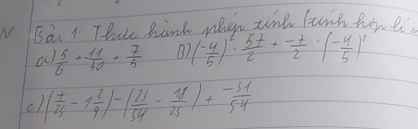 Bài 1 Thực hành phép tính (tính hợp lí
a) 5/6 + -11/30 + 7/5 B) (-4/5)² · 57/2 + -7/2 · (-4/5)²
c) (7/25 - 1 2/9) - (21/54 - 18/25) + -31/54